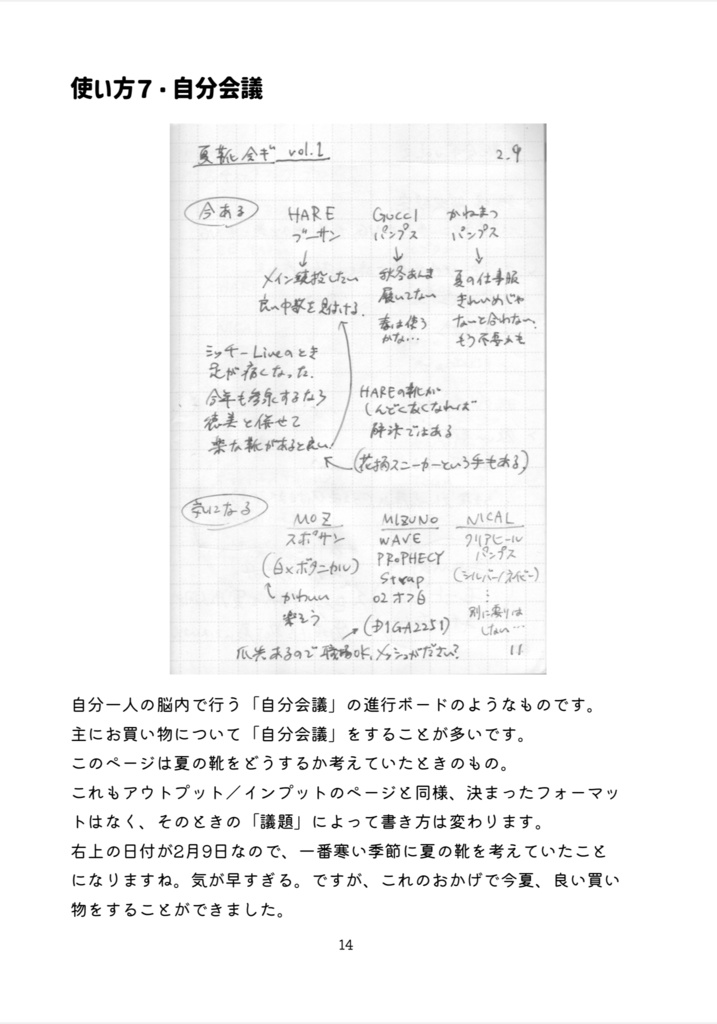 使い方7・自分会議
夏靴会ギ vol.1 2.9
今ある
HARE GUCCI かねまつ
ブーサン パンプス パンプス
メイン続投したい
良い中敷を見付ける。
秋冬あんま
履いてない
春は使う
かな…
夏の仕事服
きれいめじゃ
ないと合わない。
もう不要かも
ミッチーLiveのとき
足が痛くなった。
今年も参戦するなら
徳美と併せて
楽な靴があると良い
HAREの靴が
しんどくなくなれば
解決ではある
(花柄スニーカーという手もある)
気になる
MOZ
スポサン
(白×ボタニカル)
かわいい
楽そう
MIZUNO
WAVE
PROPHECY
Strap
02 オフ白
(D1GA2251)
NICAL
クリアヒール
パンプス
(シルバー/ネイビー)
別に要りは
しない…
爪先あるので職場OK,メッシュがださい?
11
自分一人の脳内で行う「自分会議」の進行ボードのようなものです。
主にお買い物について「自分会議」をすることが多いです。
このページは夏の靴をどうするか考えていたときのもの。
これもアウトプット／インプットのページと同様、決まったフォーマッ
トはなく、そのときの「議題」によって書き方は変わります。
右上の日付が2月9日なので、一番寒い季節に夏の靴を考えていたこと
になりますね。気が早すぎる。ですが、これのおかげで今夏、良い買い
物をすることができました。
14